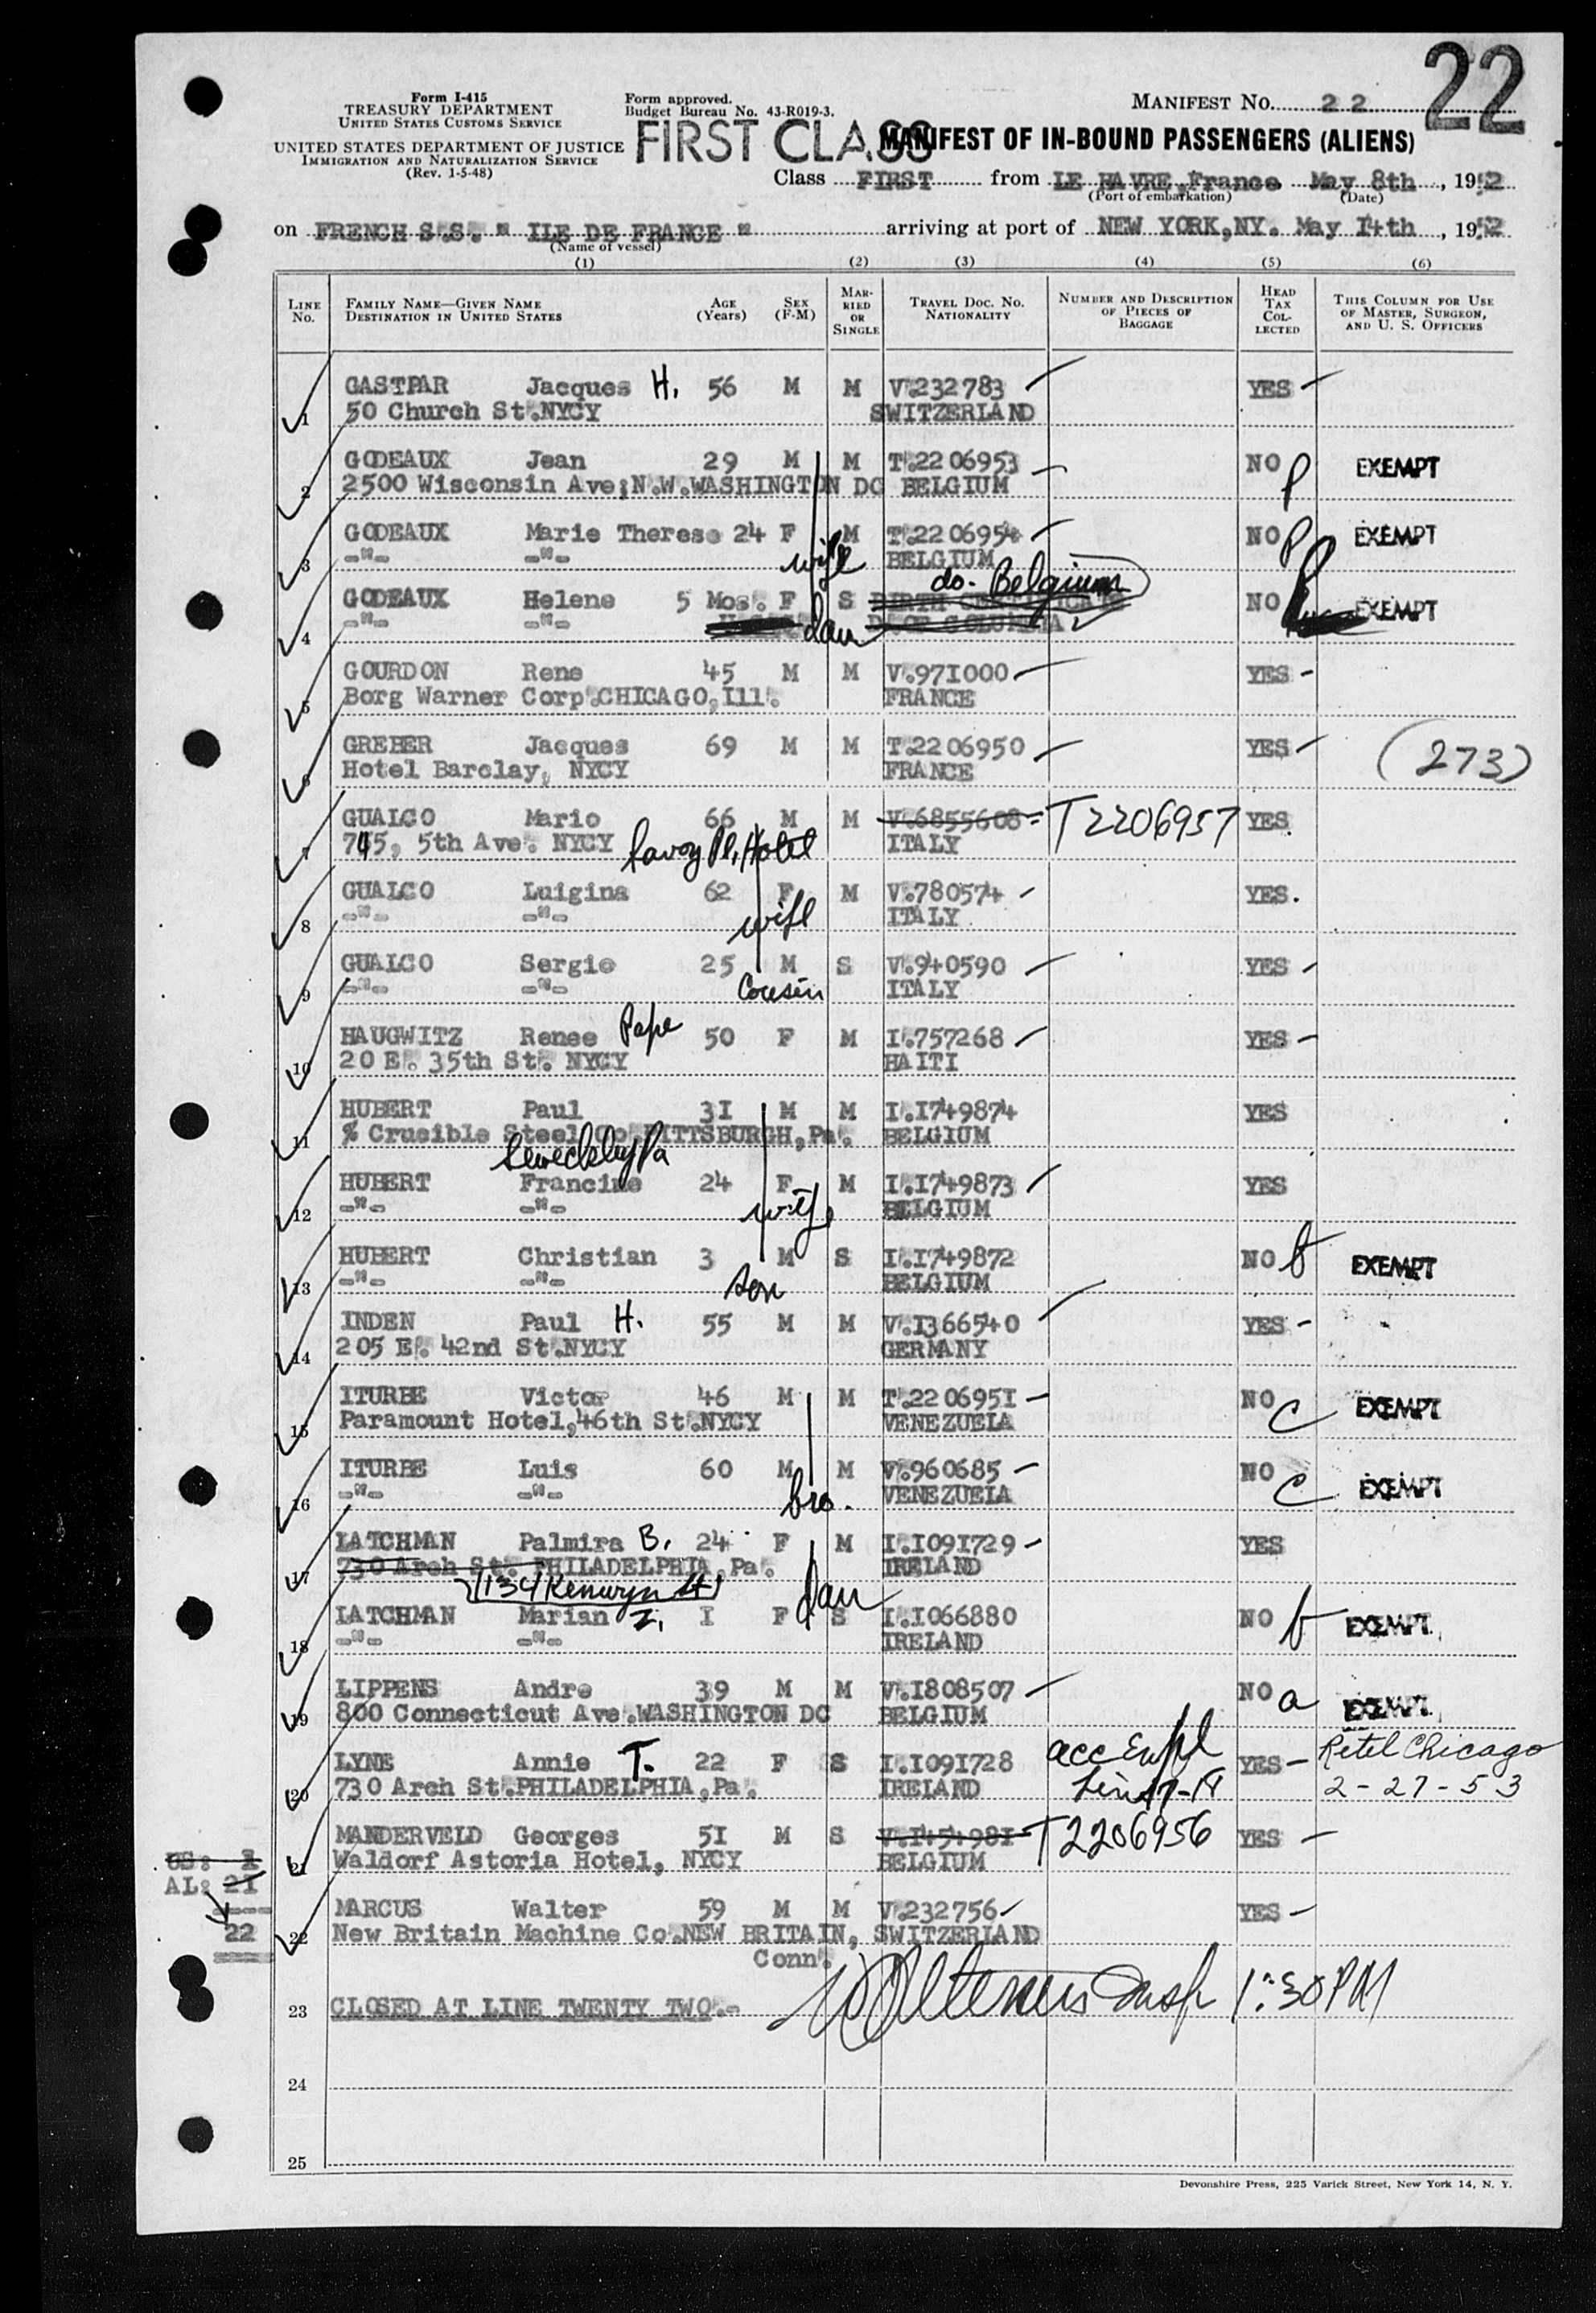 22
Form I-415
TREASURY DEPARTMENT
UNITED STATES CUSTOMS SERVICE
UNITED STATES DEPARTMENT OF JUSTICE
IMMIGRATION AND NATURALIZATION SERVICE
(Rev. 1-5-48)
Form approved.
Budget Bureau No. 43-R019-3.
MANIFEST No. 22
FIRST CLASS
MANIFEST OF IN-BOUND PASSENGERS (ALIENS)
Class FIRST from LE HAVRE,France May 8th, 1952
(Port of embarkation) (Date)
on FRENCH S.S. " ILE DE FRANCE " arriving at port of NEW YORK,NY. May I4th, 1952
(Name of vessel)
(1) (2) (3) (4) (5) (6)
LINE No. FAMILY NAME—GIVEN NAME DESTINATION IN UNITED STATES AGE (Years) SEX (F-M) MARRIED OR SINGLE TRAVEL DOC. NO. NATIONALITY NUMBER AND DESCRIPTION OF PIECES OF BAGGAGE HEAD TAX COLLECTED THIS COLUMN FOR USE OF MASTER, SURGEON, AND U. S. OFFICERS
GASTPAR Jacques H. 56 M M V.232783 YES
1 50 Church St.NYCY SWITZERLAND
GODEAUX Jean 29 M M T.2206953 NO p EXEMPT
2 2500 Wisconsin Ave;N.W.WASHINGTON DC BELGIUM
GODEAUX Marie Therese 24 F M T.2206954 NO p EXEMPT
3 -"- -"- wife BELGIUM
do. Belgium
GODEAUX Helene 5 Mos. F S BIRTH CERTIFICATE NO EXEMPT
4 -"- -"- dau D.OF COLUMBIA
GOURDON Rene 45 M M V.97I000 YES
5 Borg Warner Corp.CHICAGO,Ill. FRANCE
GREBER Jacques 69 M M T.2206950 YES (273)
6 Hotel Barclay, NYCY FRANCE
GUALCO Mario 66 M M V.6855608 T2206957 YES
7 745, 5th Ave. NYCY Savoy Pl. Hotel ITALY
GUALCO Luigina 62 F M V.780574 YES.
8 -"- -"- wife ITALY
GUALCO Sergio 25 M S V.940590 YES
9 -"- -"- Cousin ITALY
HAUGWITZ Renee Pape 50 F M I.757268 YES
10 20 E. 35th St. NYCY HAITI
HUBERT Paul 3I M M I.I749874 YES
11 % Crucible Steel Co.PITTSBURGH,Pa. BELGIUM
Sewickley Pa
HUBERT Francine 24 F M I.I749873 YES
12 -"- -"- wife BELGIUM
HUBERT Christian 3 M S I.I749872 NO b EXEMPT
13 -"- -"- son BELGIUM
INDEN Paul H. 55 M M V.I366540 YES
14 205 E. 42nd St.NYCY GERMANY
ITURBE Victor 46 M M T.220695I NO c EXEMPT
15 Paramount Hotel,46th St.NYCY VENEZUELA
ITURBE Luis 60 M M V.960685 NO c EXEMPT
16 -"- -"- bro. VENEZUELA
LATCHMAN Palmira B. 24 F M I.I09I729 YES
17 730 Arch St. PHILADELPHIA,Pa. IRELAND
1134 Kenwyn St
LATCHMAN Marian I. I F dau S I.I066880 NO b EXEMPT
18 -"- -"- IRELAND
LIPPENS Andre 39 M M V.I808507 NO a EXEMPT
19 800 Connecticut Ave.WASHINGTON DC BELGIUM
LYNE Annie T. 22 F S I.I09I728 acc Empl YES Retel Chicago
20 730 Arch St.PHILADELPHIA,Pa. IRELAND Line 17-18 2-27-53
MANDERVELD Georges 5I M S V.I45498I T2206956 YES
21 Waldorf Astoria Hotel, NYCY BELGIUM
US: I
AL: 2I
22
MARCUS Walter 59 M M V.232756 YES
22 New Britain Machine Co.NEW BRITAIN, SWITZERLAND
Conn.
23 CLOSED AT LINE TWENTY TWO.- Insp 1:30 PM
24
25
Devonshire Press, 225 Varick Street, New York 14, N. Y.